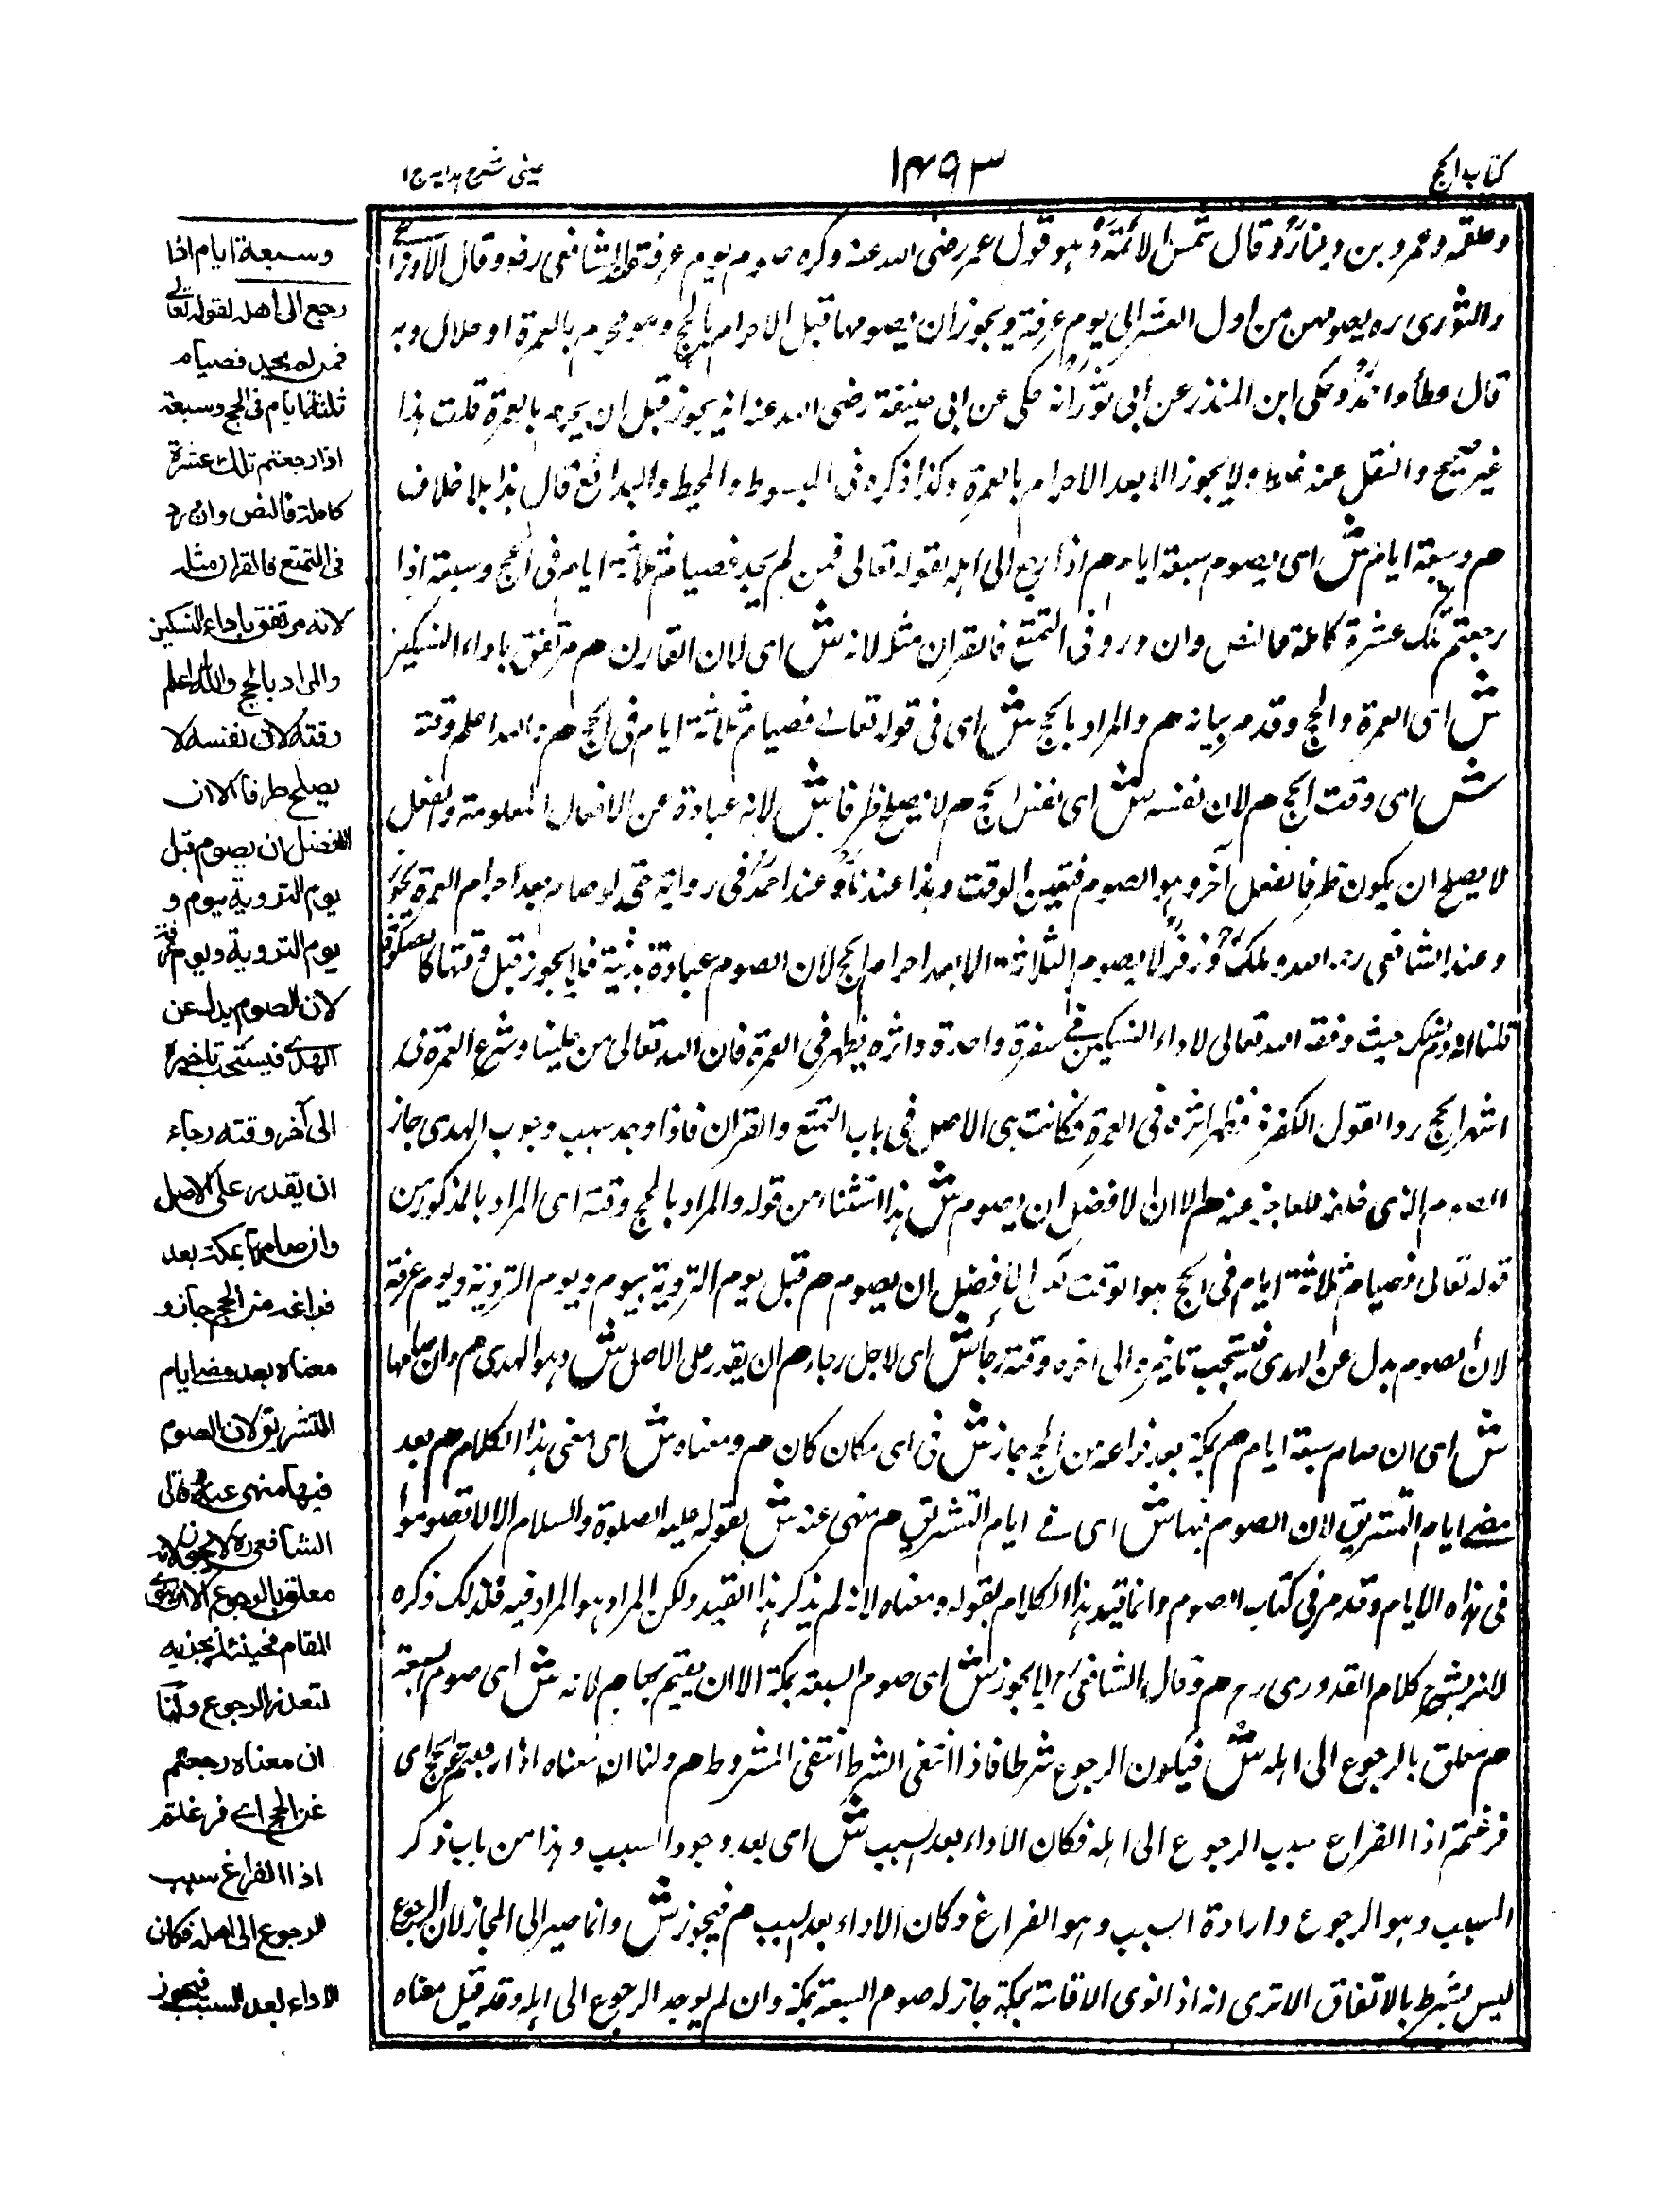 كتاب الحج
١٤٩٣
عينى شرح هدايه ج ١
وعلقمة وعمرو بن دينارؒ وقال شمس الائمةؒ وهو قول عمر رضى الله عنه وكره صوم يوم عرفة الشافعى رضه وقال الاوزاعى
والثورى ره يصومهن من اول العشر الى يوم عرفة ويجوز ان يصومها قبل الاحرام بالحج وهو محرم بالعمرة او حلال وبه
قال عطاء واحمدؒ وحكى ابن المنذر عن ابى ثورؒ انه حكى عن ابى حنيفة رضى الله عنه انه يجوز قبل ان يحرم بالعمرة قلت هذا
غير صحيح والنقل عنه غلط ولا يجوز الا بعد الاحرام بالعمرة وكذا ذكره فى المبسوط والمحيط والبدائع قال هذا بلا خلاف
هم وسبعة ايام ش اى يصوم سبعة ايام هم اذا رجع الى اهله لقوله تعالى فمن لم يجد فصيام ثلاثة ايام فى الحج وسبعة اذا
رجعتم تلك عشرة كاملة فالنص وان ورد فى التمتع فالقران مثله لانه ش اى لان القارن هم مرتفق باداء النسكين
ش اى العمرة والحج وقد مر بيانه هم والمراد بالحج ش اى فى قوله تعالى فصيام ثلاثة ايام فى الحج هم والله اعلم وقته
ش اى وقت الحج هم لان نفسه ش اى نفس الحج هم لا يصلح ظرفا ش لانه عبادة عن الافعال المعلومة والفعل
لا يصلح ان يكون ظرفا لفعل آخر وهو الصوم فتعين الوقت وهذا عندنا وعند احمدؒ فى رواية حتى لو صام بعد احرام العمرة يجوز
وعند الشافعى رحمه الله ومالكؒ وزفرؒ لا يصوم الثلاثة الا بعد احرام الحج لان الصوم عبادة بدنية فلا يجوز قبل وقتها كالصلوة
قلنا انه دم شكر حيث وفقه الله تعالى لاداء النسكين فى سفرة واحدة واثره يظهر فى العمرة فان الله تعالى من علينا وشرع العمرة فى
اشهر الحج ردا لقول الكفرة فظهر اثره فى العمرة فكانت هى الاصل فى باب التمتع والقران فاذا وجد سبب وجوب الهدى جاز
الصوم الذى خلف للعاجز عنه هم الا ان الافضل ان يصوم ش هذا استثناء من قوله والمراد بالحج وقته اى المراد بالمذكور من
قوله تعالى فصيام ثلاثة ايام فى الحج هو الوقت الافضل ان يصوم هم قبل يوم التروية بيوم ويوم التروية ويوم عرفة
لان الصوم بدل عن الهدى فيستحب تاخيره الى آخره وقته رجاء ش اى لاجل رجاء هم ان يقدر على الاصل ش وهو الهدى هم وان صامها
ش اى ان صام سبعة ايام هم بمكة بعد فراغه من الحج جاز ش فى اى مكان كان هم ومعناه ش اى معنى هذا الكلام هم بعد
مضى ايام التشريق لان الصوم فيها ش اى فى ايام التشريق هم منهى عنه ش لقوله عليه الصلوة والسلام الا لا تصوموا
فى هذه الايام وقد مر فى كتاب الصوم وانما قيد هذا الكلام بقوله ومعناه لانه لم يذكر هذا القيد ولكن المراد هو المراد فيه فلذلك ذكره
لانه يشرح كلام القدورى رح هم وقال الشافعىؒ لا يجوز ش اى صوم السبعة بمكة الا ان يقيم بها هم لانه ش اى صوم السبعة
هم معلق بالرجوع الى اهله ش فيكون الرجوع شرطا فاذا انتفى الشرط انتفى المشروط هم ولنا ان معناه اذا رجعتم عن الحج اى
فرغتم اذا الفراغ سبب الرجوع الى اهله فكان الاداء بعد السبب ش اى بعد وجود السبب وهذا من باب ذكر
المسبب وهو الرجوع وارادة السبب وهو الفراغ وكان الاداء بعد السبب هم فيجوز ش وانما صير الى المجاز لان الرجوع
ليس بشرط بالاتفاق الا ترى انه اذا نوى الاقامة بمكة جاز له صوم السبعة بمكة وان لم يوجد الرجوع الى اهله وقد قيل معناه
وسبعة ايام اذا
رجع الى اهله لقوله تعالى
فمن لم يجد فصيام
ثلثة ايام فى الحج وسبعة
اذا رجعتم تلك عشرة
كاملة فالنص وان ورد
فى التمتع فالقران مثله
لانه مرتفق باداء النسكين
والمراد بالحج والله اعلم
وقته لان نفسه لا
يصلح ظرفا الا ان
الافضل ان يصوم قبل
يوم التروية بيوم و
يوم التروية ويوم عرفة
لان الصوم بدل عن
الهدى فيستحب تاخيره
الى آخر وقته رجاء
ان يقدر على الاصل
وان صامها بمكة بعد
فراغه من الحج جاز و
معناه بعد مضى ايام
التشريق لان الصوم
فيها منهى عنه وقال
الشافعى ره لا يجوز لانه
معلق بالرجوع الا ان ينوى
المقام فحينئذ يجزيه
لتعذر الرجوع ولنا
ان معناه رجعتم
عن الحج اى فرغتم
اذا الفراغ سبب
الرجوع الى اهله فكان
الاداء بعد السبب فيجوز